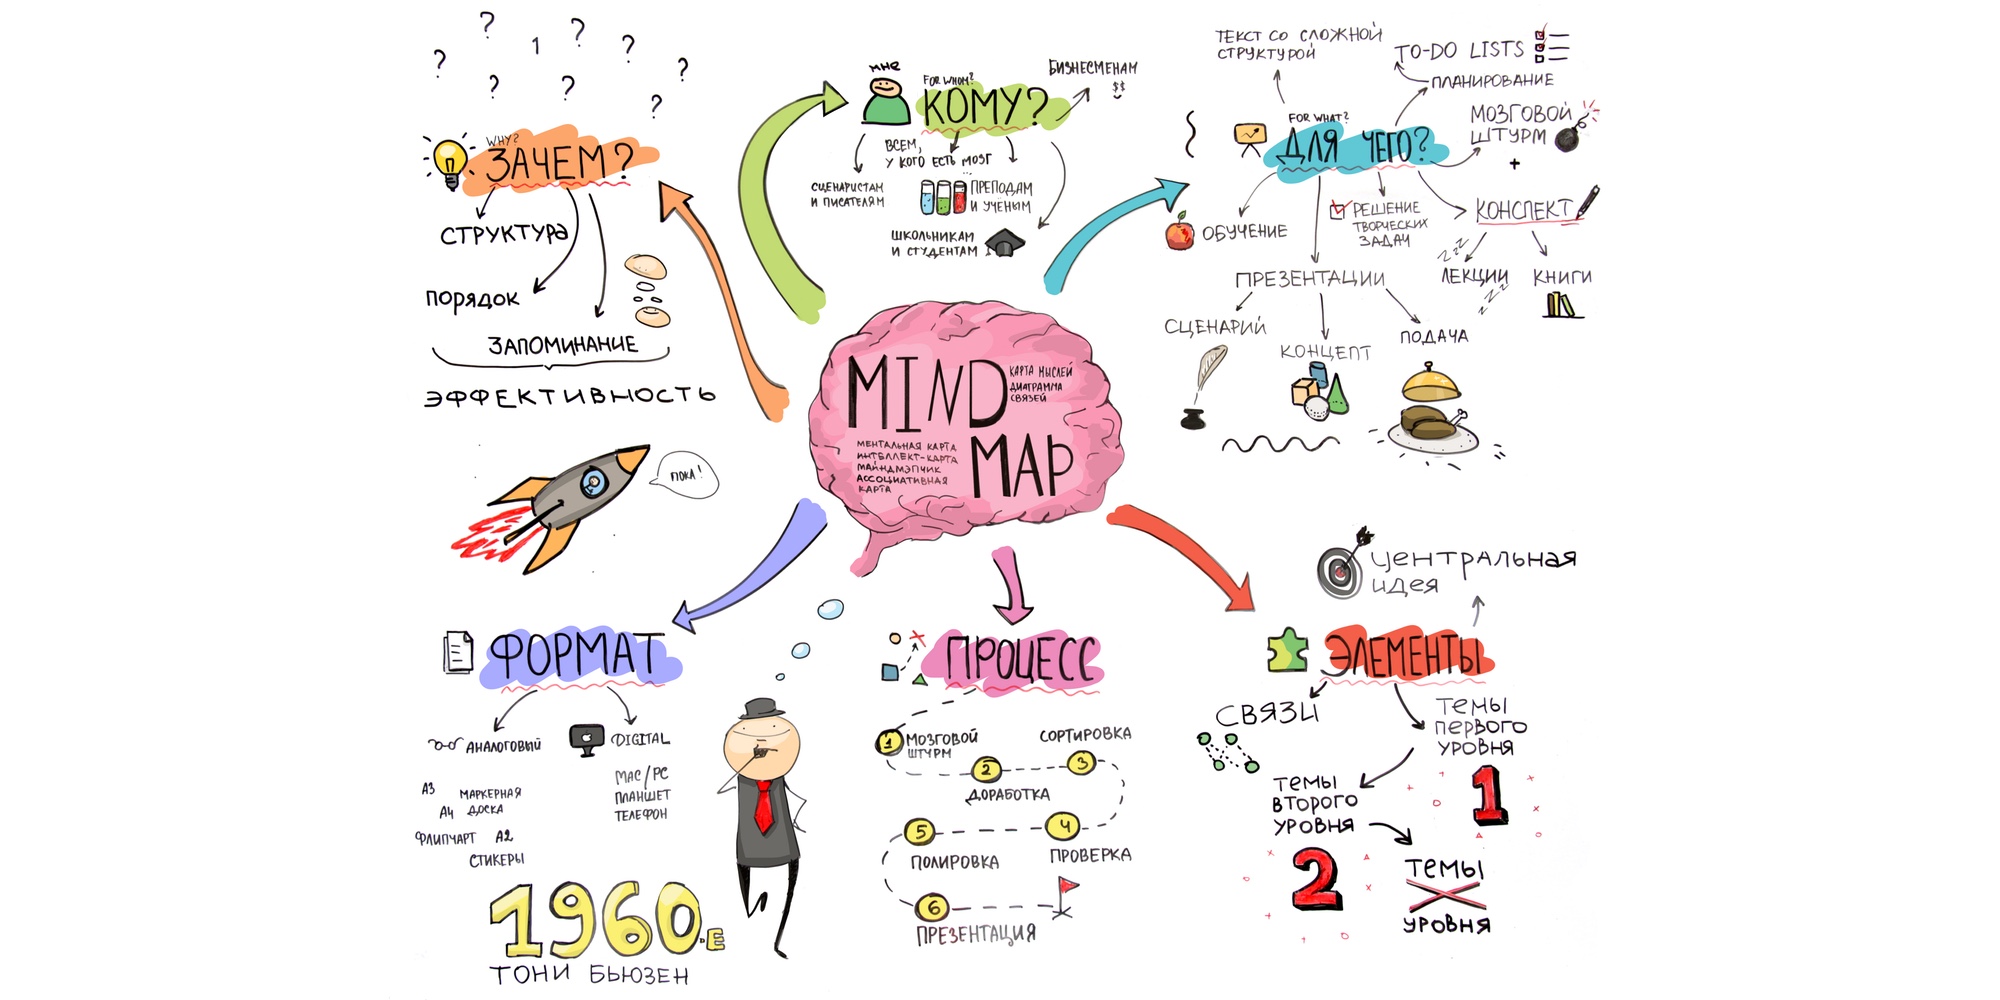 MIND
КАРТА МЫСЛЕЙ
ДИАГРАММА
СВЯЗЕЙ
MAP
МЕНТАЛЬНАЯ КАРТА
ИНТЕЛЛЕКТ-КАРТА
МАЙНДМЭПЧИК
АССОЦИАТИВНАЯ
КАРТА
? ? 1 ? ? ? ? ? ? ?
WHY?
ЗАЧЕМ?
СТРУКТУРА
ПОРЯДОК
ЗАПОМИНАНИЕ
ЭФФЕКТИВНОСТЬ
ПОКА!
МНЕ
FOR WHOM?
КОМУ?
БИЗНЕСМЕНАМ
$$
ВСЕМ,
У КОГО ЕСТЬ МОЗГ
...
СЦЕНАРИСТАМ
И ПИСАТЕЛЯМ
ПРЕПОДАМ
И УЧЁНЫМ
ШКОЛЬНИКАМ
И СТУДЕНТАМ
FOR WHAT?
ДЛЯ ЧЕГО?
ТЕКСТ СО СЛОЖНОЙ
СТРУКТУРОЙ
TO-DO LISTS
ПЛАНИРОВАНИЕ
МОЗГОВОЙ
ШТУРМ
+
КОНСПЕКТ
ZZZ
ЛЕКЦИИ
ZZZ
КНИГИ
РЕШЕНИЕ
ТВОРЧЕСКИХ
ЗАДАЧ
ОБУЧЕНИЕ
ПРЕЗЕНТАЦИИ
СЦЕНАРИЙ
КОНЦЕПТ
ПОДАЧА
ФОРМАТ
АНАЛОГОВЫЙ
DIGITAL
А3
МАРКЕРНАЯ
ДОСКА
А4
ФЛИПЧАРТ
А2
СТИКЕРЫ
MAC/PC
ПЛАНШЕТ
ТЕЛЕФОН
1960-Е
ТОНИ БЬЮЗЕН
ПРОЦЕСС
1
МОЗГОВОЙ
ШТУРМ
2
ДОРАБОТКА
СОРТИРОВКА
3
4
ПРОВЕРКА
5
ПОЛИРОВКА
6
ПРЕЗЕНТАЦИЯ
ЭЛЕМЕНТЫ
ЦЕНТРАЛЬНАЯ
ИДЕЯ
СВЯЗИ
ТЕМЫ
ПЕРВОГО
УРОВНЯ
1
ТЕМЫ
ВТОРОГО
УРОВНЯ
2
ТЕМЫ
X
УРОВНЯ